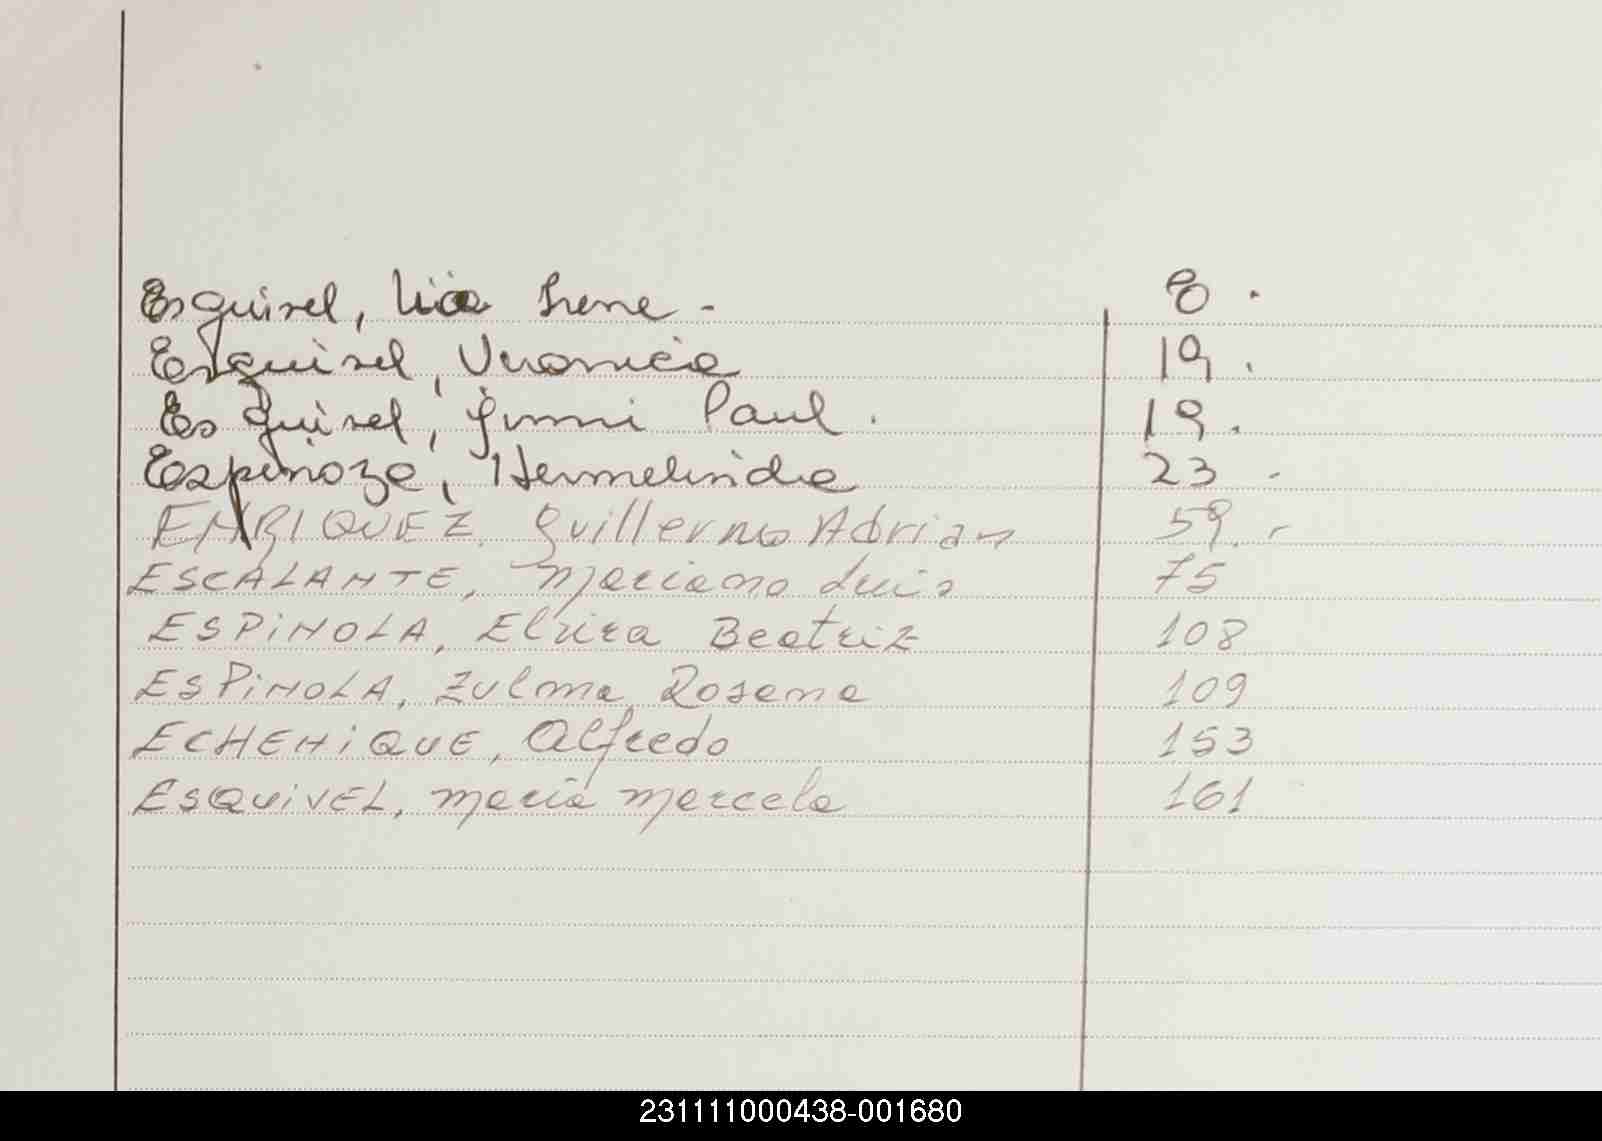 Esquivel, Lia Irene - 8.
Esquivel, Veronica 19.
Esquivel, Jimmi Paul. 19.
Espinoza, Hermelinda 23 -
ENRIQUEZ, Guillermo Adrian 59.-
ESCALANTE, Mariano Luis 75
ESPINOLA, Elvira Beatriz 108
ESPINOLA, Zulma Rosana 109
ECHENIQUE, Alfredo 153
ESQUIVEL, María Marcela 161
231111000438-001680